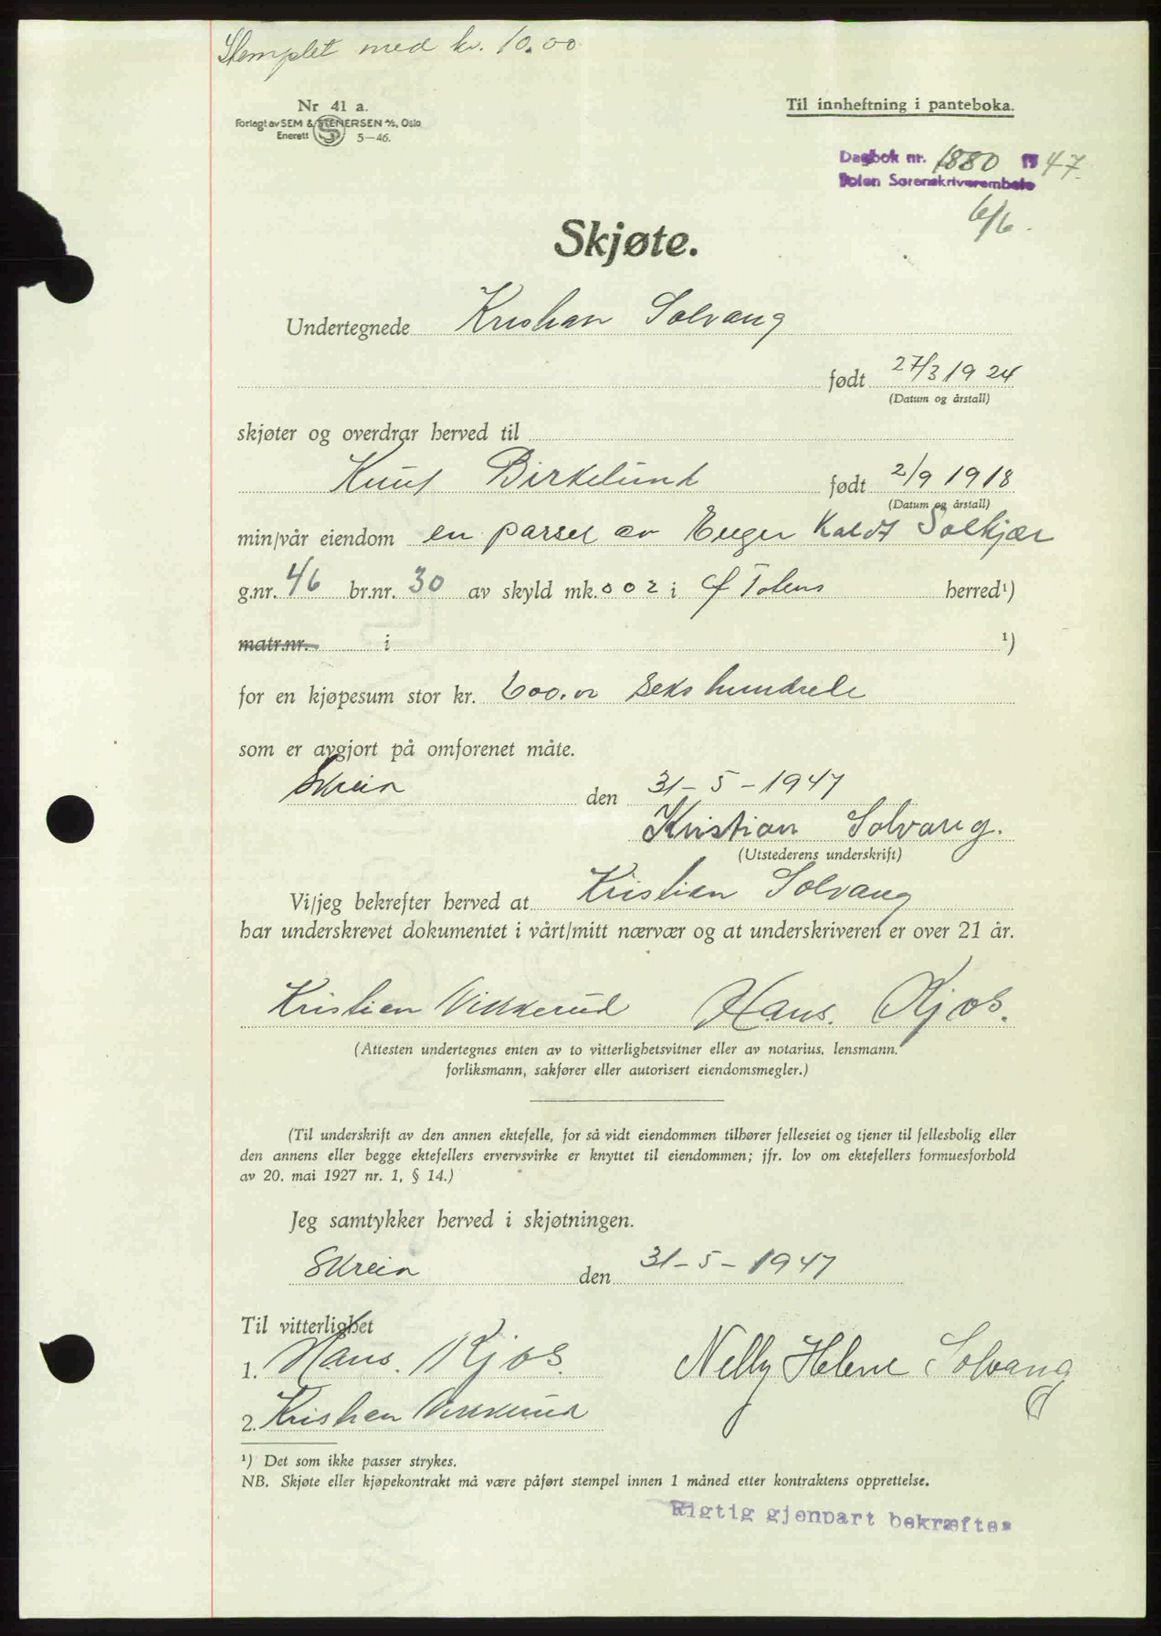 Stemplet med kr. 10.00
Nr 41 a.
Forlagt av SEM & STENERSEN A/S, Oslo
Enerett S 5—46.
Til innheftning i panteboka.
Dagbok nr. 1880 1947.
Toten Sorenskriverembete
6/6.
Skjøte.
Undertegnede Kristian Solvang
født 27/3 1924
(Datum og årstall)
skjøter og overdrar herved til
Knut Birkelund født 2/9 1918
(Datum og årstall)
min/vår eiendom en parsel av Kaldt Solkjær
g.nr. 46 br.nr. 30 av skyld mk. 0 02 i Totens herred¹)
matr.nr. i ¹)
for en kjøpesum stor kr. 600.00 seks hundrede
som er avgjort på omforenet måte.
Skreia den 31-5-1947
Kristian Solvang.
(Utstederens underskrift)
Vi/jeg bekrefter herved at Kristian Solvang
har underskrevet dokumentet i vårt/mitt nærvær og at underskriveren er over 21 år.
Kristian Vikkerud Hans. Kjos.
(Attesten undertegnes enten av to vitterlighetsvitner eller av notarius, lensmann,
forliksmann, sakfører eller autorisert eiendomsmegler.)
(Til underskrift av den annen ektefelle, for så vidt eiendommen tilhører felleseiet og tjener til fellesbolig eller
den annens eller begge ektefellers ervervsvirke er knyttet til eiendommen; jfr. lov om ektefellers formuesforhold
av 20. mai 1927 nr. 1, § 14.)
Jeg samtykker herved i skjøtningen.
Skreia den 31-5-1947
Til vitterlighet
1. Hans. Kjos.
Nelly Helene Solvang
2. Kristian Vikkerud
¹) Det som ikke passer strykes.
NB. Skjøte eller kjøpekontrakt må være påført stempel innen 1 måned etter kontraktens opprettelse.
Rigtig gjenpart bekræftes